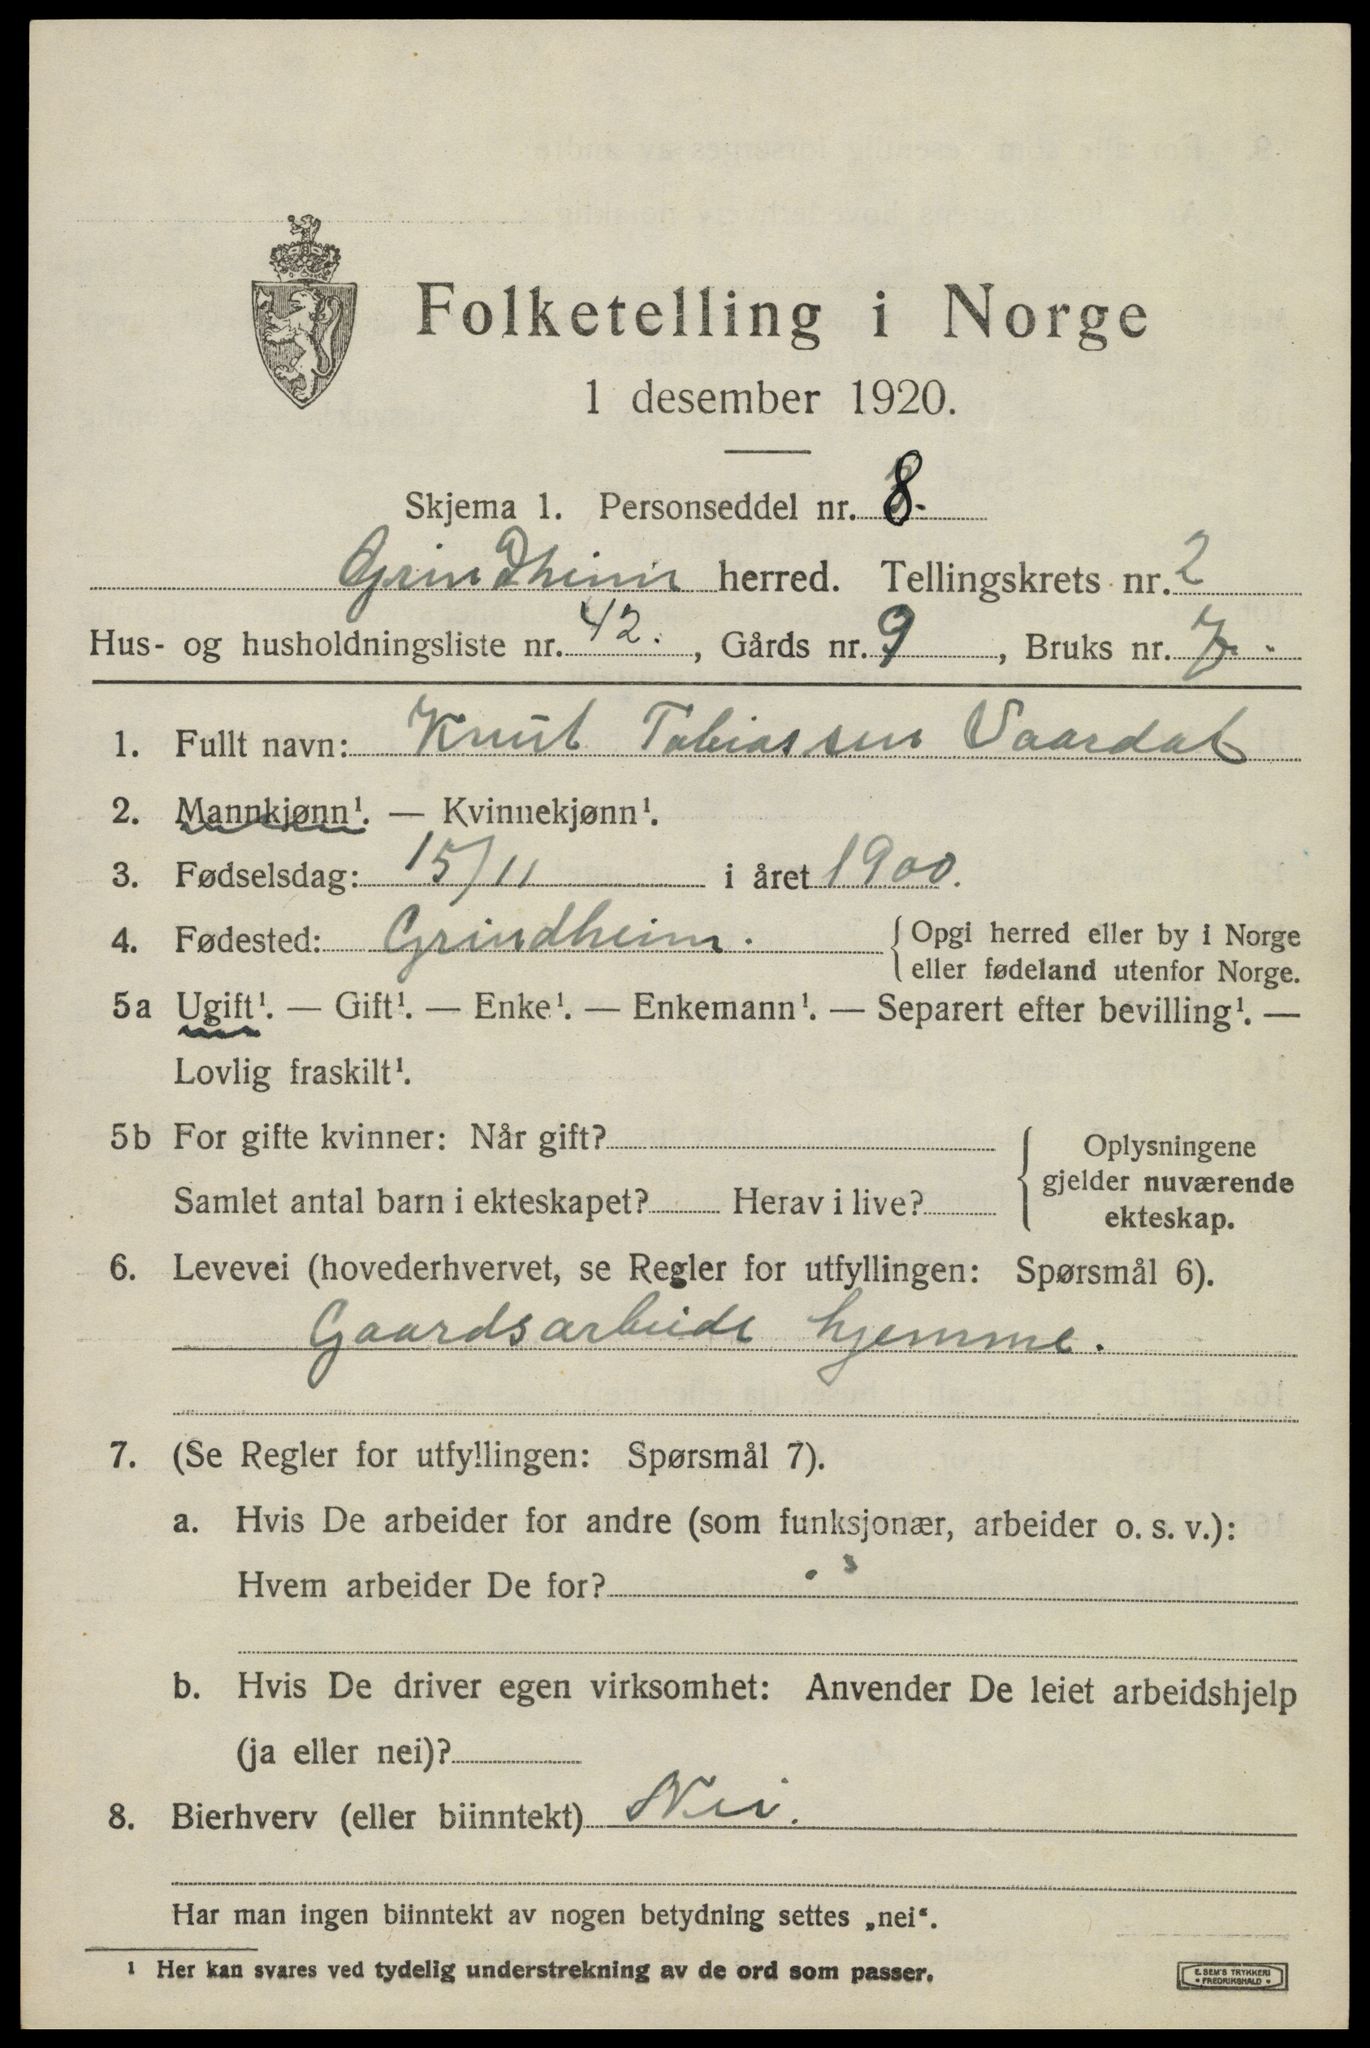 Folketelling i Norge
1 desember 1920.
Skjema 1. Personseddel nr. 8.
Grindheim herred. Tellingskrets nr. 2
Hus- og husholdningsliste nr. 42. , Gårds nr. 9 , Bruks nr. 7.
1. Fullt navn: Knut Tobiassen Vaardal
2. Mannkjønn¹. — Kvinnekjønn¹.
3. Fødselsdag: 15/11 i året 1900.
4. Fødested: Grindheim. { Opgi herred eller by i Norge
eller fødeland utenfor Norge.
5a Ugift¹. — Gift¹. — Enke¹. — Enkemann¹. — Separert efter bevilling¹. —
Lovlig fraskilt¹.
5b For gifte kvinner: Når gift?
Samlet antal barn i ekteskapet? Herav i live?
{ Oplysningene
gjelder nuværende
ekteskap.
6. Levevei (hovederhvervet, se Regler for utfyllingen: Spørsmål 6).
Gaardsarbeide hjemme.
7. (Se Regler for utfyllingen: Spørsmål 7).
a. Hvis De arbeider for andre (som funksjonær, arbeider o. s. v.):
Hvem arbeider De for?
b. Hvis De driver egen virksomhet: Anvender De leiet arbeidshjelp
(ja eller nei)?
8. Bierhverv (eller biinntekt) Nei.
Har man ingen biinntekt av nogen betydning settes „nei“.
¹ Her kan svares ved tydelig understrekning av de ord som passer.
E. SEM'S TRYKKERI
• FREDRIKSHALD •